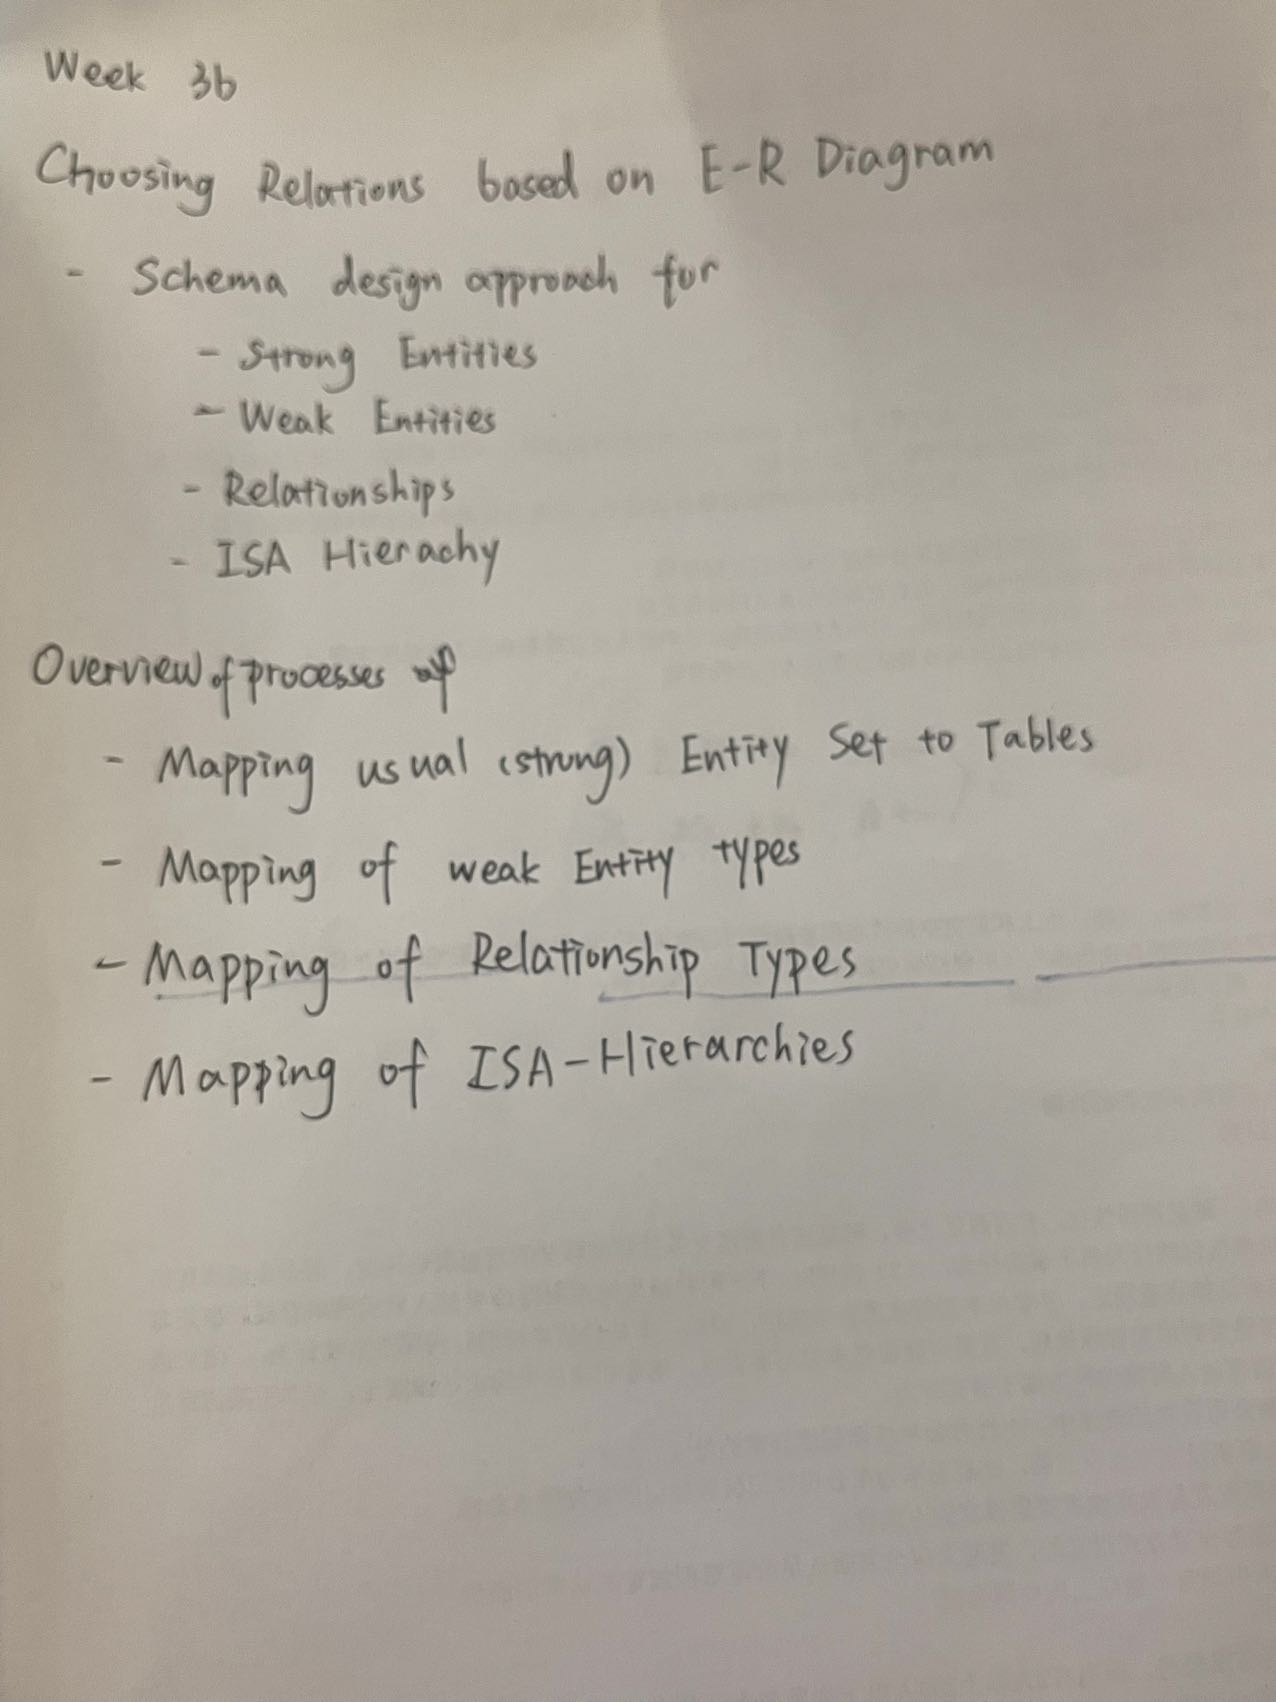 Week 3b
Choosing Relations based on E-R Diagram
- Schema design approach for
- Strong Entities
- Weak Entities
- Relationships
- ISA Hierachy
Overview of processes of
- Mapping usual (strong) Entity Set to Tables
- Mapping of weak Entity types
- Mapping of Relationship Types
- Mapping of ISA-Hierarchies